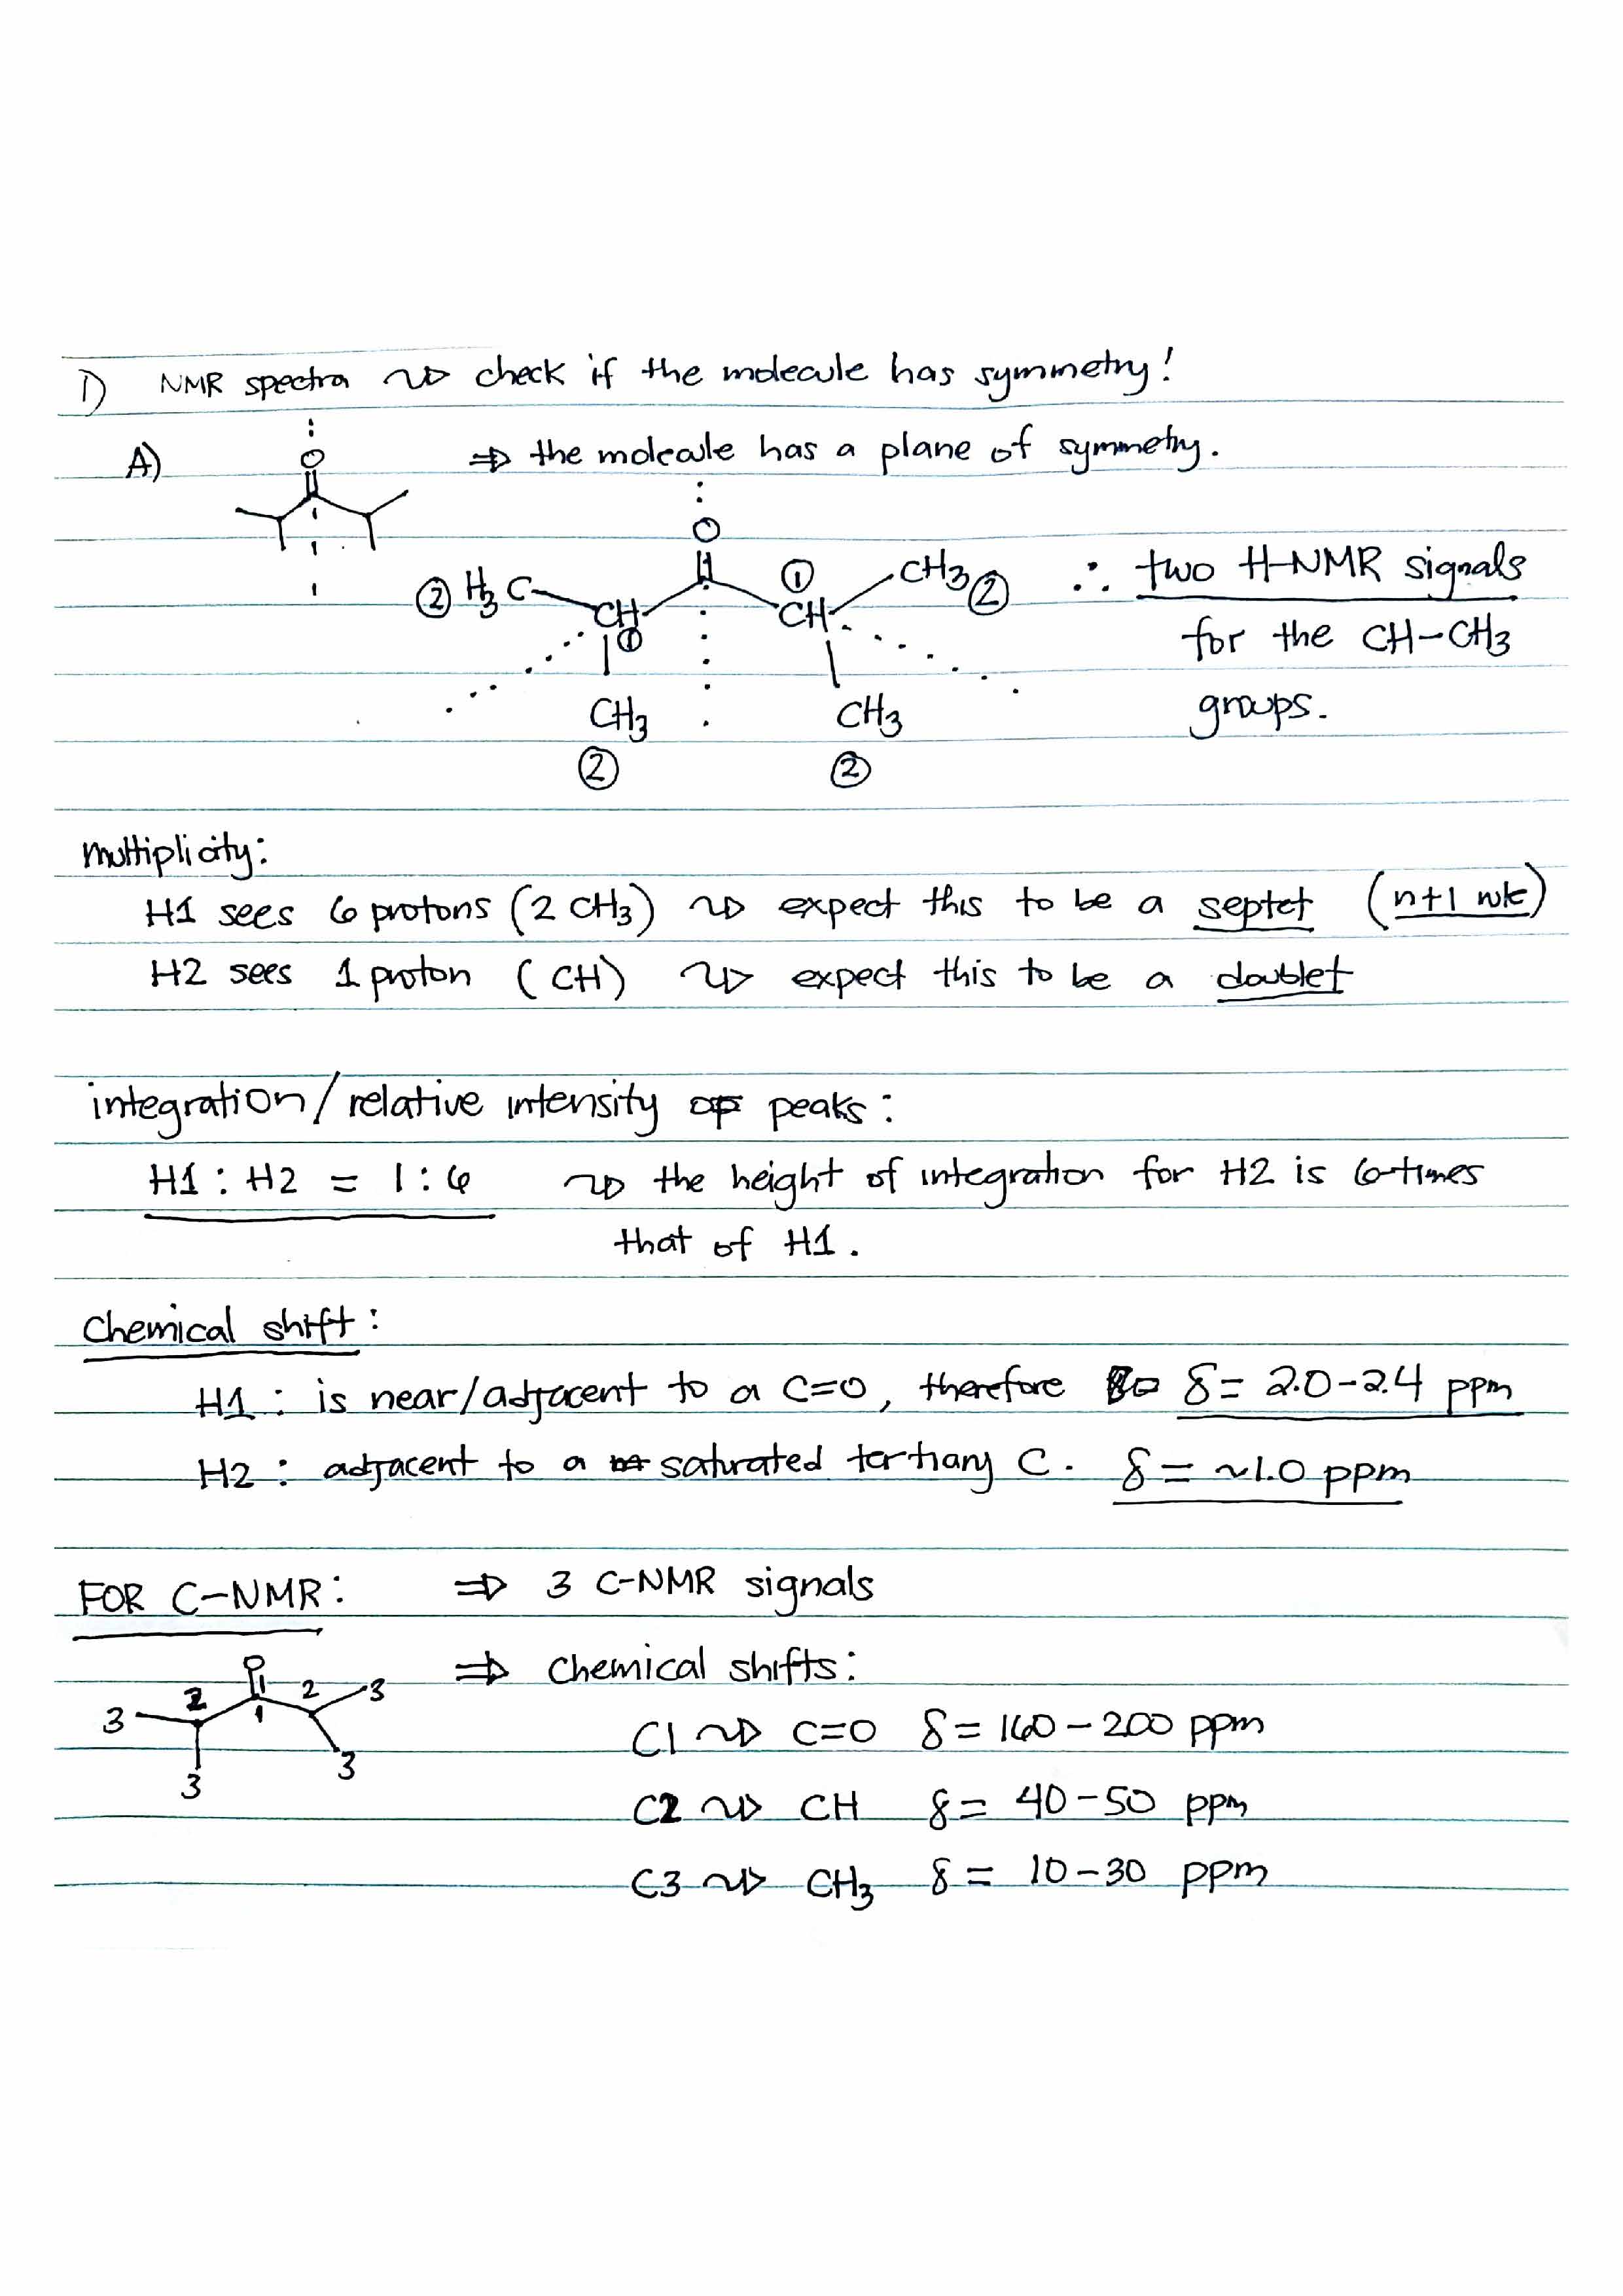 1) NMR spectra ⇝ check if the molecule has symmetry!
A) O ⇒ the molecule has a plane of symmetry.
O
② H3C CH ① ① CH CH3 ② ∴ two H-NMR signals
for the CH-CH3
CH3 CH3 groups.
② ②
multiplicity:
H1 sees 6 protons (2 CH3) ⇝ expect this to be a septet (n+1 rule)
H2 sees 1 proton (CH) ⇝ expect this to be a doublet
integration/relative intensity of peaks:
H1 : H2 = 1 : 6 ⇝ the height of integration for H2 is 6-times
that of H1.
Chemical shift:
H1 : is near/adjacent to a C=O, therefore δ = 2.0-2.4 ppm
H2 : adjacent to a saturated tertiary C. δ = ~1.0 ppm
FOR C-NMR: ⇒ 3 C-NMR signals
O ⇒ Chemical shifts:
3 2 1 2 3
3 3
C1 ⇝ C=O δ = 160-200 ppm
C2 ⇝ CH δ = 40-50 ppm
C3 ⇝ CH3 δ = 10-30 ppm